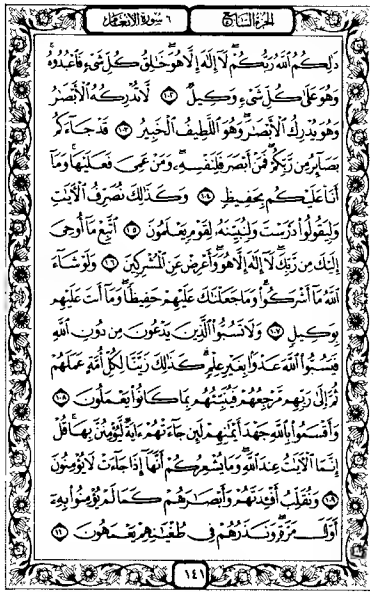 الجزء السابع
٦ سورة الأنعام
ذَٰلِكُمُ ٱللَّهُ رَبُّكُمْ ۖ لَآ إِلَٰهَ إِلَّا هُوَ ۖ خَٰلِقُ كُلِّ شَىْءٍ فَٱعْبُدُوهُ ۚ
وَهُوَ عَلَىٰ كُلِّ شَىْءٍ وَكِيلٌ ١٠٢ لَّا تُدْرِكُهُ ٱلْأَبْصَٰرُ
وَهُوَ يُدْرِكُ ٱلْأَبْصَٰرَ ۖ وَهُوَ ٱللَّطِيفُ ٱلْخَبِيرُ ١٠٣ قَدْ جَآءَكُم
بَصَآئِرُ مِن رَّبِّكُمْ ۖ فَمَنْ أَبْصَرَ فَلِنَفْسِهِۦ ۖ وَمَنْ عَمِىَ فَعَلَيْهَا ۚ وَمَآ
أَنَا۠ عَلَيْكُم بِحَفِيظٍ ١٠٤ وَكَذَٰلِكَ نُصَرِّفُ ٱلْءَايَٰتِ
وَلِيَقُولُوا۟ دَرَسْتَ وَلِنُبَيِّنَهُۥ لِقَوْمٍ يَعْلَمُونَ ١٠٥ ٱتَّبِعْ مَآ أُوحِىَ
إِلَيْكَ مِن رَّبِّكَ ۖ لَآ إِلَٰهَ إِلَّا هُوَ ۖ وَأَعْرِضْ عَنِ ٱلْمُشْرِكِينَ ١٠٦ وَلَوْ شَآءَ
ٱللَّهُ مَآ أَشْرَكُوا۟ ۗ وَمَا جَعَلْنَٰكَ عَلَيْهِمْ حَفِيظًا ۖ وَمَآ أَنتَ عَلَيْهِم
بِوَكِيلٍ ١٠٧ وَلَا تَسُبُّوا۟ ٱلَّذِينَ يَدْعُونَ مِن دُونِ ٱللَّهِ
فَيَسُبُّوا۟ ٱللَّهَ عَدْوًۢا بِغَيْرِ عِلْمٍ ۗ كَذَٰلِكَ زَيَّنَّا لِكُلِّ أُمَّةٍ عَمَلَهُمْ
ثُمَّ إِلَىٰ رَبِّهِم مَّرْجِعُهُمْ فَيُنَبِّئُهُم بِمَا كَانُوا۟ يَعْمَلُونَ ١٠٨
وَأَقْسَمُوا۟ بِٱللَّهِ جَهْدَ أَيْمَٰنِهِمْ لَئِن جَآءَتْهُمْ ءَايَةٌ لَّيُؤْمِنُنَّ بِهَا ۚ قُلْ
إِنَّمَا ٱلْءَايَٰتُ عِندَ ٱللَّهِ ۖ وَمَا يُشْعِرُكُمْ أَنَّهَآ إِذَا جَآءَتْ لَا يُؤْمِنُونَ
١٠٩ وَنُقَلِّبُ أَفْـِٔدَتَهُمْ وَأَبْصَٰرَهُمْ كَمَا لَمْ يُؤْمِنُوا۟ بِهِۦٓ
أَوَّلَ مَرَّةٍ وَنَذَرُهُمْ فِى طُغْيَٰنِهِمْ يَعْمَهُونَ ١١٠
١٤١